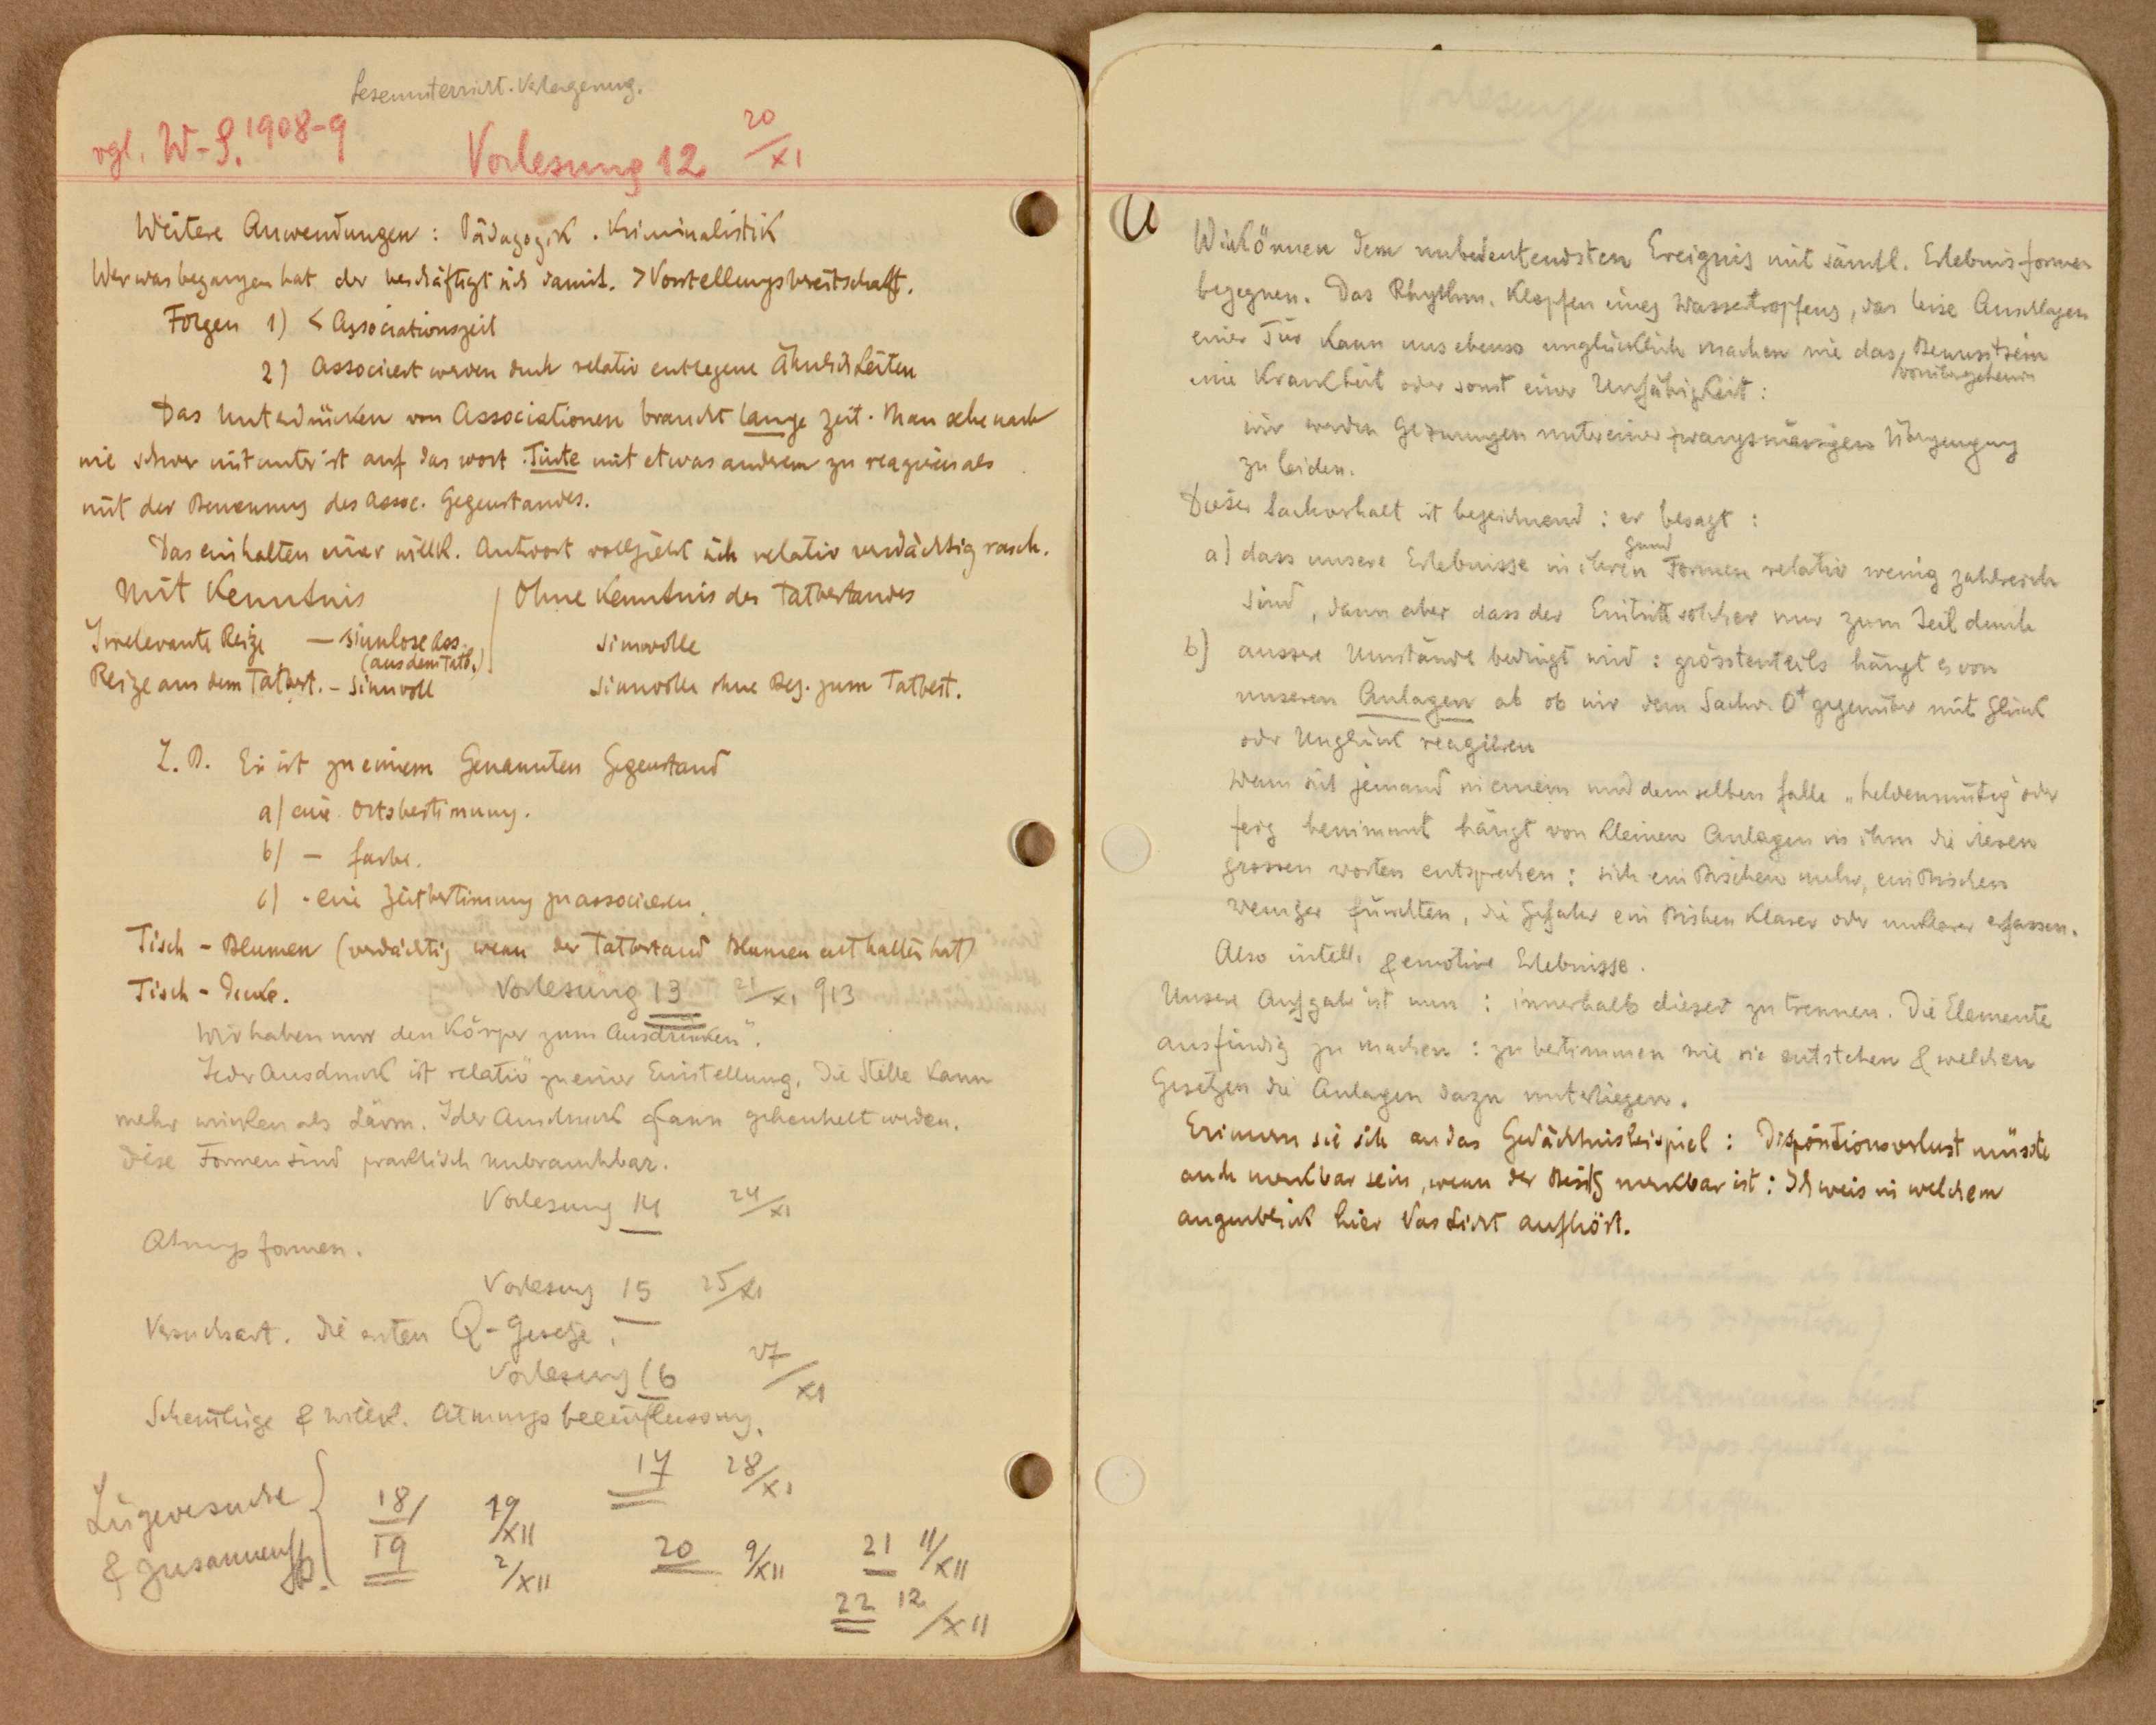 Leseunterricht. Verlagerung.
vgl. W-S. 1908-9
Vorlesung 12 20/XI
Weitere Anwendungen: Pädagogik. Kriminalistik
Wer was begangen hat der beschäftigt sich damit. > Vorstellungsbereitschaft.
Folgen 1) < Associationszeit
2) Associiert werden durch relativ entlegene Ähnlichkeiten
Das Unterdrücken von Associationen braucht lange Zeit. Man sehe nach
wie schwer mitunter ist auf das Wort Tinte mit etwas anderem zu reagieren als
mit der Benennung des assoc. Gegenstandes.
Das einhalten einer willk. Antwort vollzieht sich relativ verdächtig rasch.
Mit Kenntnis
Ohne Kenntnis des Tatbestandes
Irrelevante Reize — sinnlose Ass.
(aus dem Tatb.)
sinnvolle
Reize aus dem Tatbest. - sinnvoll
sinnvolle ohne Bez. zum Tatbest.
Z. B. Es ist zu einem Genannten Gegenstand
a) eine Ortsbestimung.
b) — farbe.
c) - eine Zeitbestimung zu associieren.
Tisch - Blumen (verdächtig wenn der Tatbestand Blumen enthalten hat)
Tisch - Decke.
Vorlesung 13 21/XI 913
Wir haben nur den Körper zum Ausdrücken".
Jeder Ausdruck ist relativ zu einer Einstellung. Die Stille kann
mehr wirken als Lärm. Jder Ausdruck kann geheuchelt werden.
Diese Formen sind praktisch unbrauchbar.
Vorlesung 14 24/XI
Atmungsformen.
Vorlesung 15 25/XI
Versuchsart. Die ersten Q-Gesetze.
Vorlesung 16 27/XI
& willk. Atmungsbeeinflussung.
17 28/XI
Lügeversuche
& zusammenf.
18/ 1/XII
19 2/XII
20 9/XII
21 11/XII
22 12/XII
Wir können dem unbedeutendsten Ereignis mit sämtl. Erlebnisformen
begegnen. Das Rhythm. Klopfen eines Wassertropfens, das leise Anschlagen
einer Tür kann uns ebenso unglücklich machen wie das Bewusstsein
vorübergehend
eine Krankheit oder sonst einer Unfähigkeit:
wir werden gezwungen unter einer zwangsmässigen Überzeugung
zu leiden.
Dieser Sachverhalt ist bezeichnend: er besagt:
a) dass unsere Erlebnisse in ihren Formen relativ wenig zahlreich
Grund
sind, dann aber dass der Eintritt solcher nur zum Teil durch
b) äussere Umstände bedingt wird: grösstenteils hängt es von
unseren Anlagen ab ob wir dem Sachv. O+ gegenüber mit Glück
oder Unglück reagieren
Wenn sich jemand in einem und demselben falle „heldenmütig oder
feig benimmt hängt von kleinen Anlagen in ihm die diesen
grossen worten entsprechen: sich ein Bischen mehr, ein Bischen
weniger fürchten, die Gefahr ein Bischen klarer oder unklarer erfassen.
Also intell. & emotive Erlebnisse.
Unsere Aufgabe ist nun: innerhalb dieser zu trennen. Die Elemente
ausfindig zu machen: zu bestimmen wie sie entstehen & welchen
Gesetzen die Anlagen dazu unterliegen.
Erinnern sie sich an das Gedächtnisbeispiel: Dispositionsverlust müsste
auch merkbar sein, wenn der Besitz merkbar ist: Ich weis in welchem
augenblick hier das Licht aufhört.